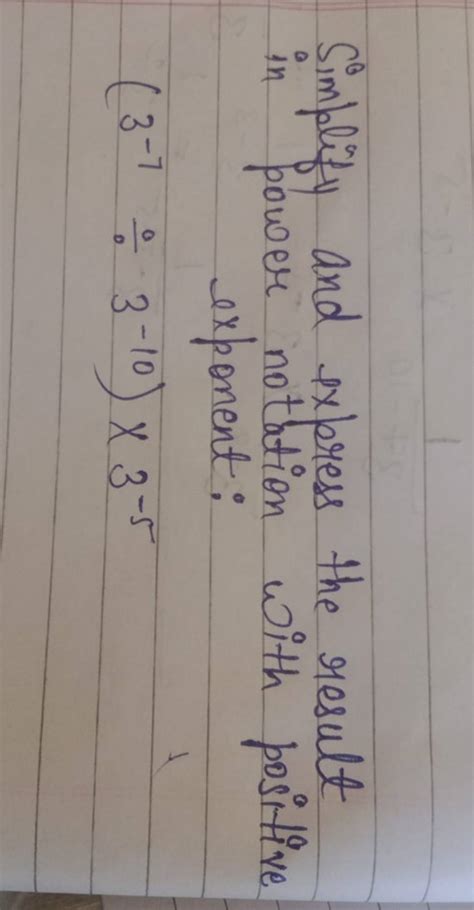 Simplify and express the result
in power notation with positive
exponent:
(3⁻⁷ ÷ 3⁻¹⁰) × 3⁻⁵